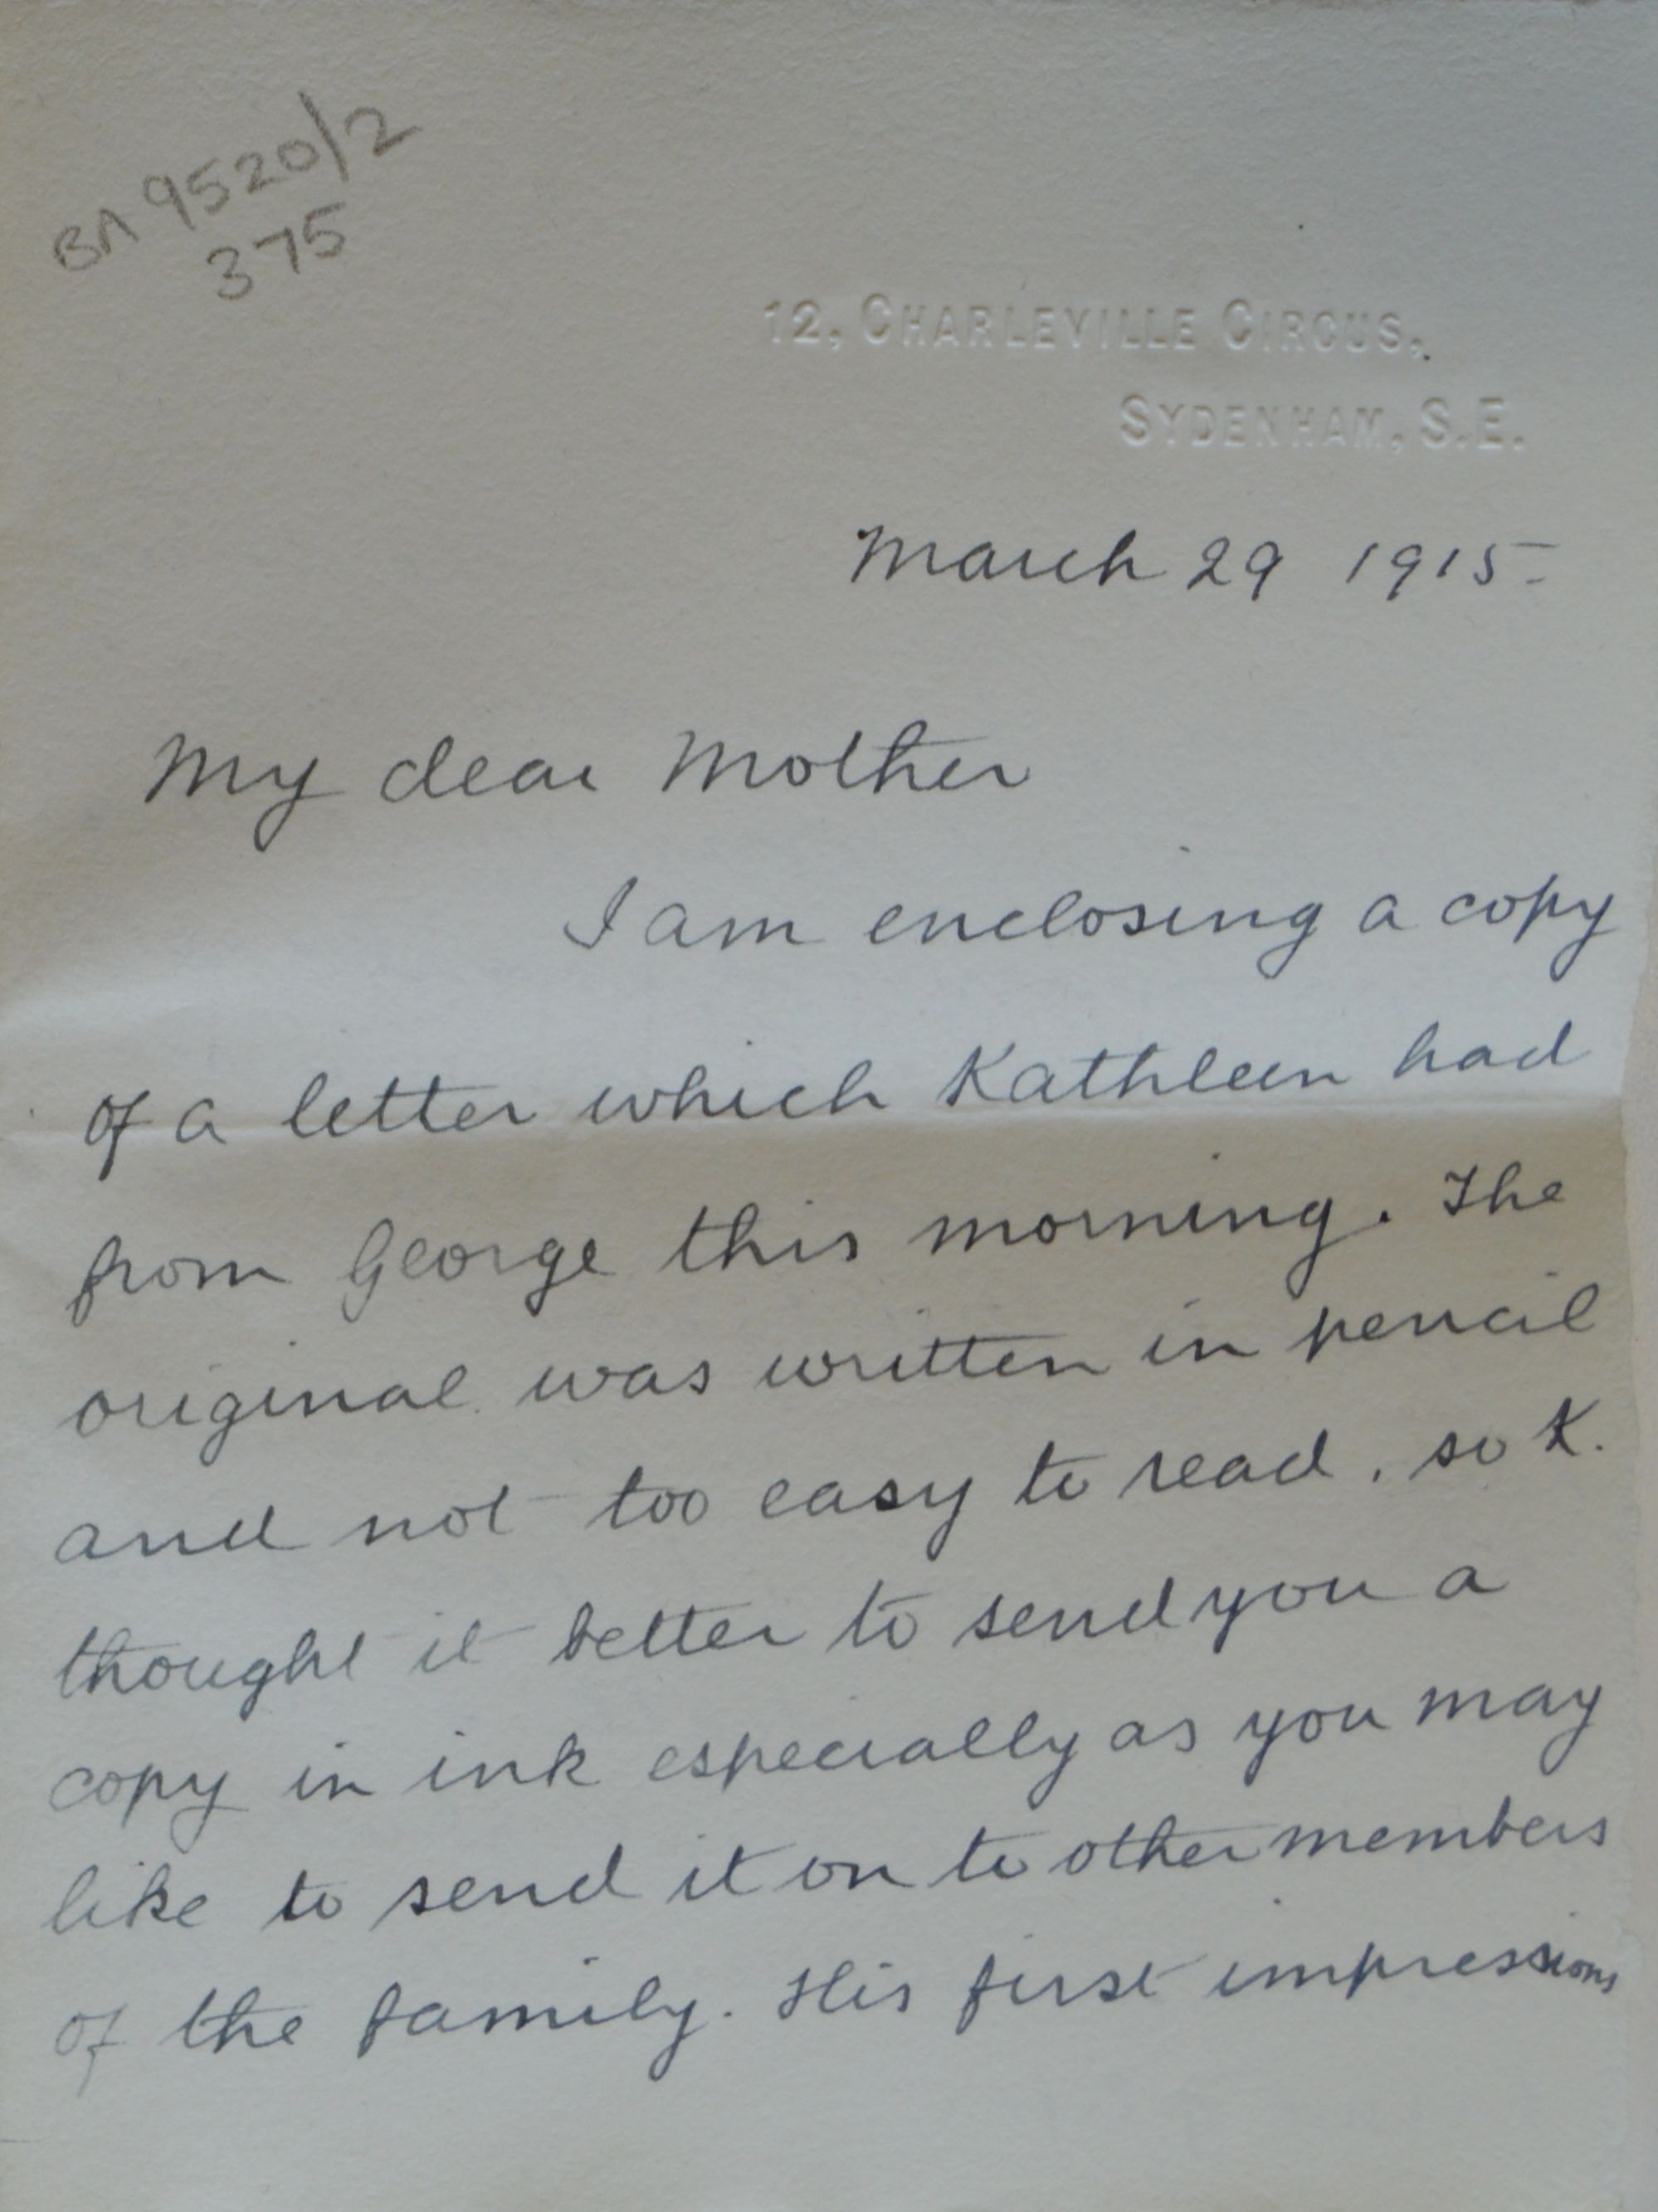 BA 9520/2
375
12, CHARLEVILLE CIRCUS,
SYDENHAM, S.E.
March 29 1915
My dear Mother
I am enclosing a copy
of a letter which Kathleen had
from George this morning. The
original was written in pencil
and not too easy to read, so K.
thought it better to send you a
copy in ink especially as you may
like to send it on to other members
of the family. His first impressions